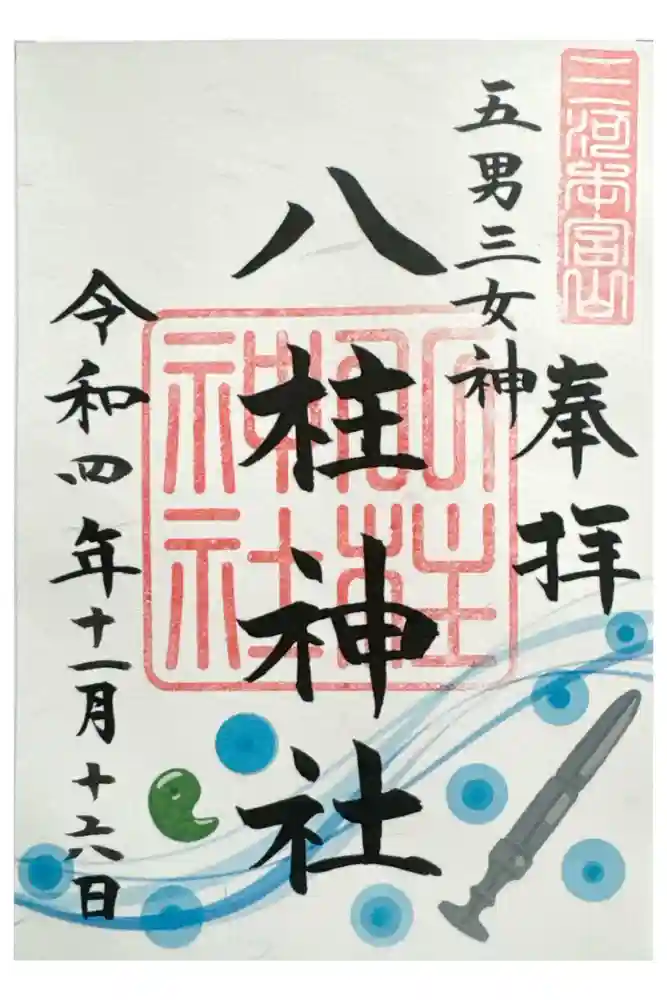 三河本宮山
奉拝
五男三女神
八柱神社
八柱
神社
令和四年十一月十六日